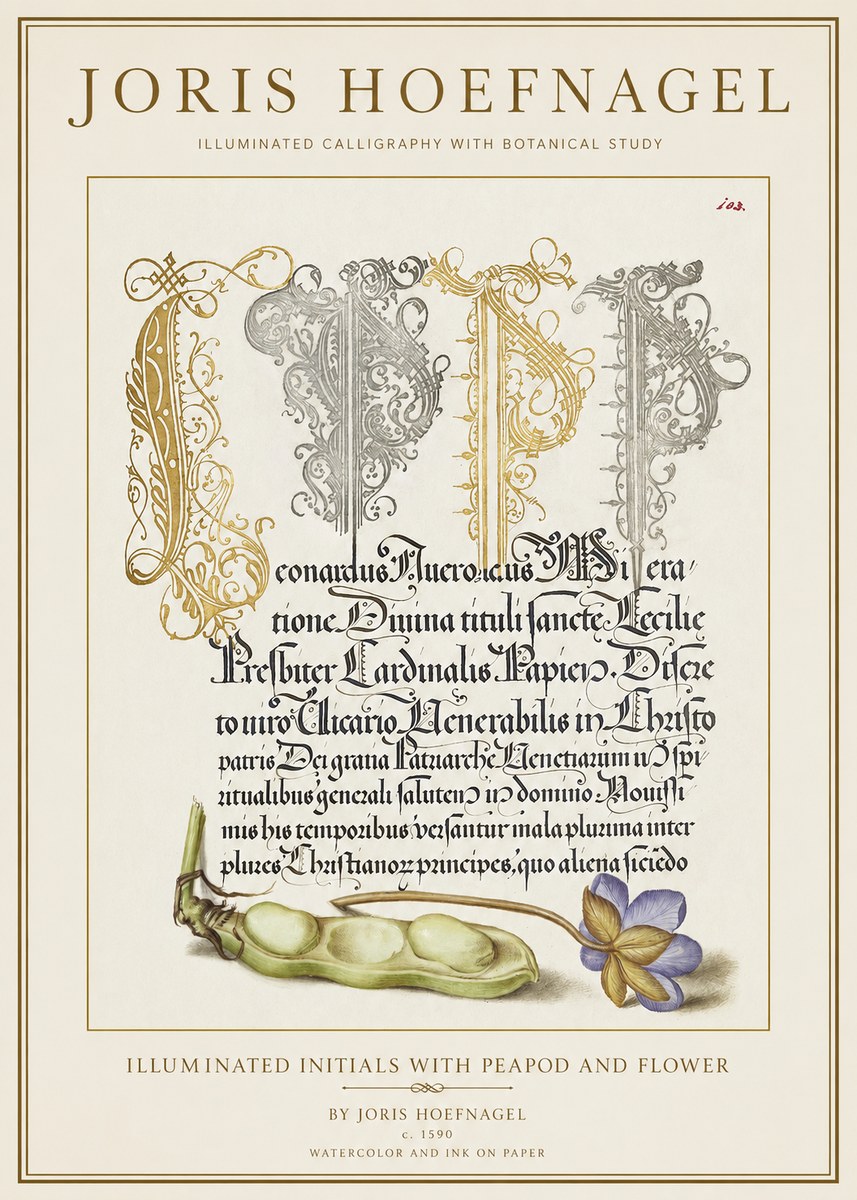 JORIS HOEFNAGEL
ILLUMINATED CALLIGRAPHY WITH BOTANICAL STUDY
103.
L P P P
eonardus Miſera
tione Diuina tituli ſancte Cecilie
Preſbiter Cardinalis Papien. Diſcre
to uiro Vicario Venerabilis in Chriſto
patris Dei gratia Patriarche Venetiarum in ſpi
ritualibus generali ſalutem in domino. Nouiſſi
mis his temporibus verſantur mala plurima inter
plures Chriſtianoꝝ principes, quo aliena
ILLUMINATED INITIALS WITH PEAPOD AND FLOWER
BY JORIS HOEFNAGEL
c. 1590
WATERCOLOR AND INK ON PAPER